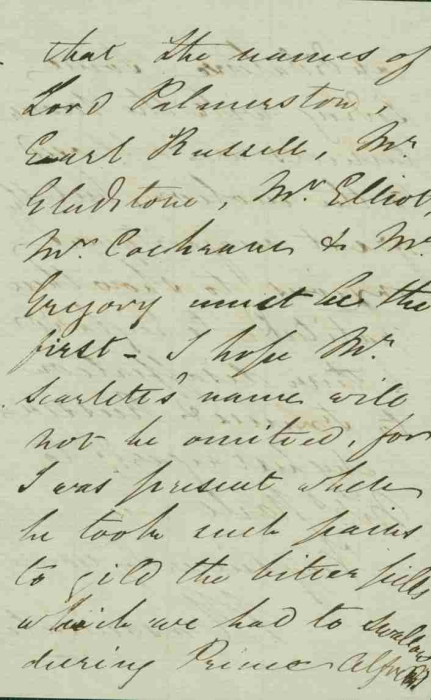 that the names of
Lord Palmerston,
Earl Russell, Mr
Gladstone, Mr. Elliot,
Mr. Cochrane & Mr.
Gregory must be the
first - I hope Mr.
Scarlett's name will
not be omitted, for
I was present when
he took such pains
to gild the bitter pills
which we had to swallow
during Prince Alfred